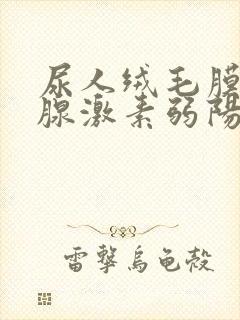 尿人绒毛膜
腺激素弱陽
雷擊烏龜殼